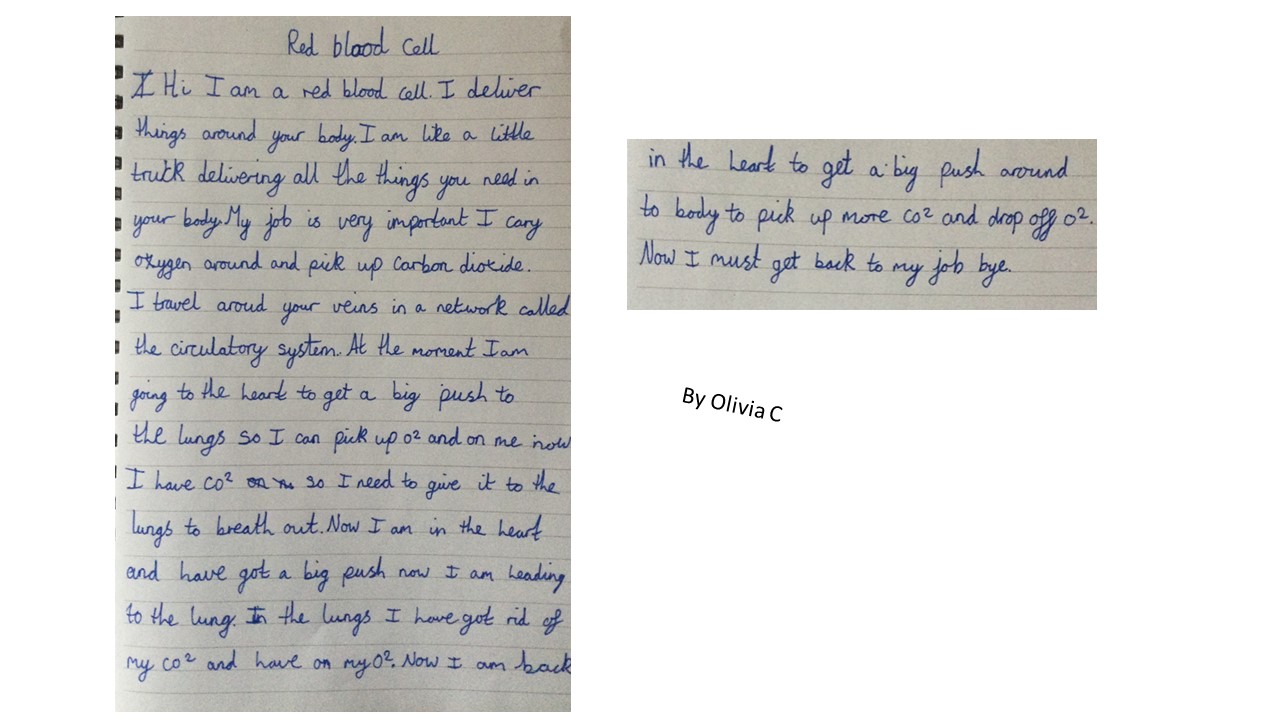 Red blood cell
Hi I am a red blood cell. I deliver
things around your body. I am like a little
truck delivering all the things you need in
your body. My job is very important I cary
oxygen around and pick up Carbon dioxide.
I travel aroud your veins in a network called
the circulatory system. At the moment I am
going to the heart to get a big push to
the lungs so I can pick up o² and on me now
I have co² so I need to give it to the
lungs to breath out. Now I am in the heart
and have got a big push now I am heading
to the lung. In the lungs I have got rid of
my co² and have on my O². Now I am back
in the heart to get a big push around
to body to pick up more co² and drop off o².
Now I must get back to my job bye.
By Olivia C